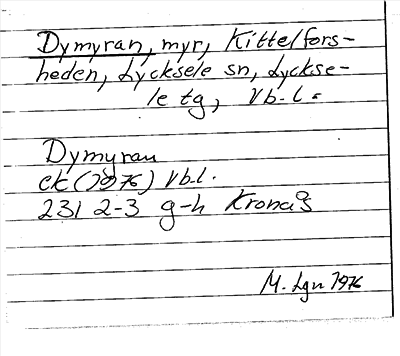 Dymyran, myr, Kittelfors-
heden, Lycksele sn, Lyckse-
le tg, Vb.l.
Dymyran
ek (1976) Vb.l.
231 2-3 g-h
M. Lgn 1976